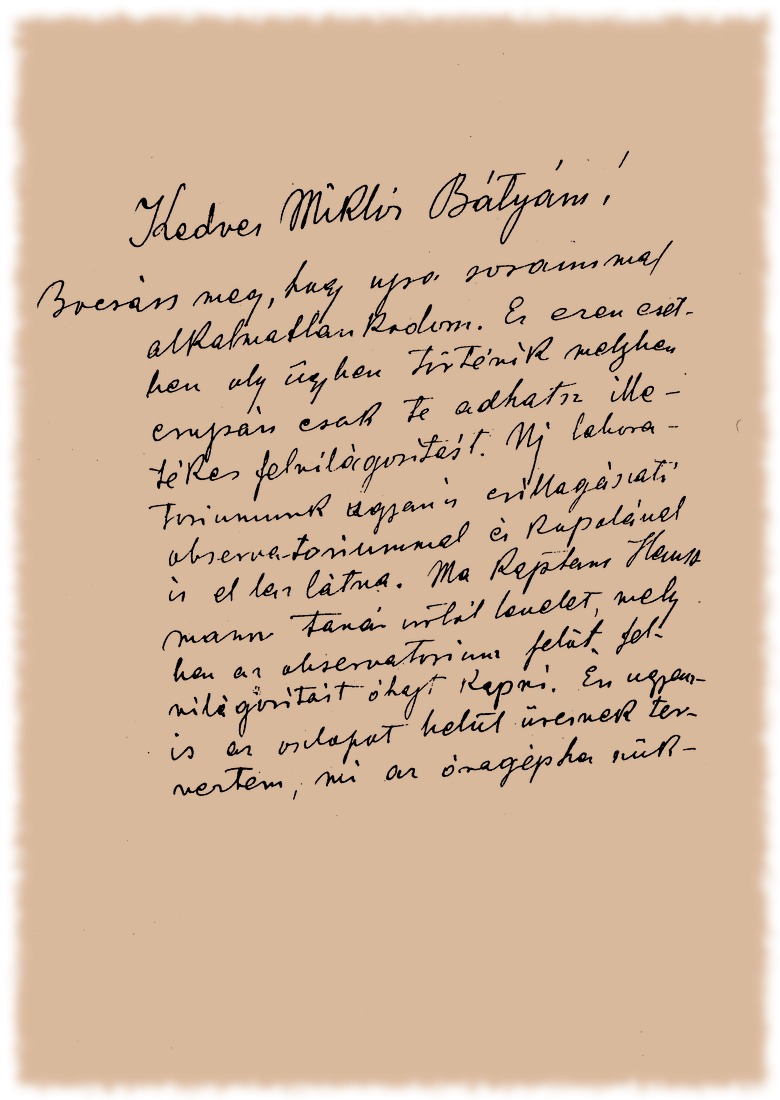 Kedves Miklós Bátyám!
Bocsáss meg, hogy ujra soraimmal
alkalmatlankodom. Ez ezen eset-
ben oly ügyben történik melyben
csupán csak te adhatsz ille-
tékes felvilágosítást. Uj labora-
toriumunk ugyanis csillagászati
observatoriummal és kupolával
is el lesz látva. Ma kaptam
mann tanár úrtól levelet, mely
ben az observatorium felöl fel-
világosítást óhajt kapni. Én ugyan-
is az oszlopot belül üresnek ter-
veztem, mi az óragépbe szük-